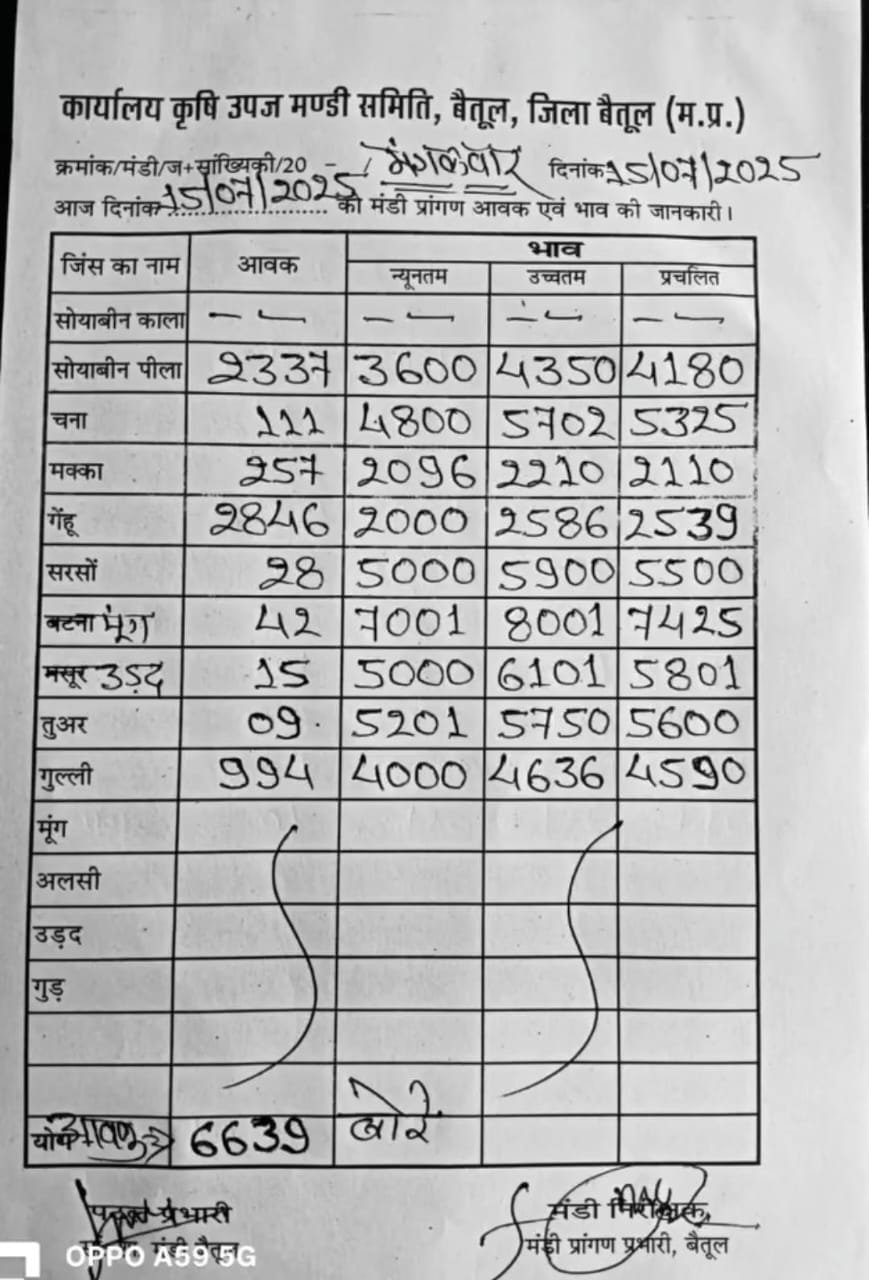 कार्यालय कृषि उपज मण्डी समिति, बैतूल, जिला बैतूल (म.प्र.)
क्रमांक/मंडी/ज+सांख्यिकी/20 - / मंगलवार दिनांक 15/07/2025
आज दिनांक 15/07/2025 को मंडी प्रांगण आवक एवं भाव की जानकारी।
जिंस का नाम आवक भाव
न्यूनतम उच्चतम प्रचलित
सोयाबीन काला -- -- -- --
सोयाबीन पीला 2337 3600 4350 4180
चना 111 4800 5702 5325
मक्का 257 2096 2210 2110
गेंहू 2846 2000 2586 2539
सरसों 28 5000 5900 5500
बटना मूंग 42 7001 8001 7425
मसूर उड़द 15 5000 6101 5801
तुअर 09 5201 5750 5600
गुल्ली 994 4000 4636 4590
मूंग
अलसी
उड़द
गुड़
योग आवक 6639 बोरे
प्रभारी मंडी निरीक्षक,
मंडी बैतूल मंडी प्रांगण प्रभारी, बैतूल
OPPO A59 5G